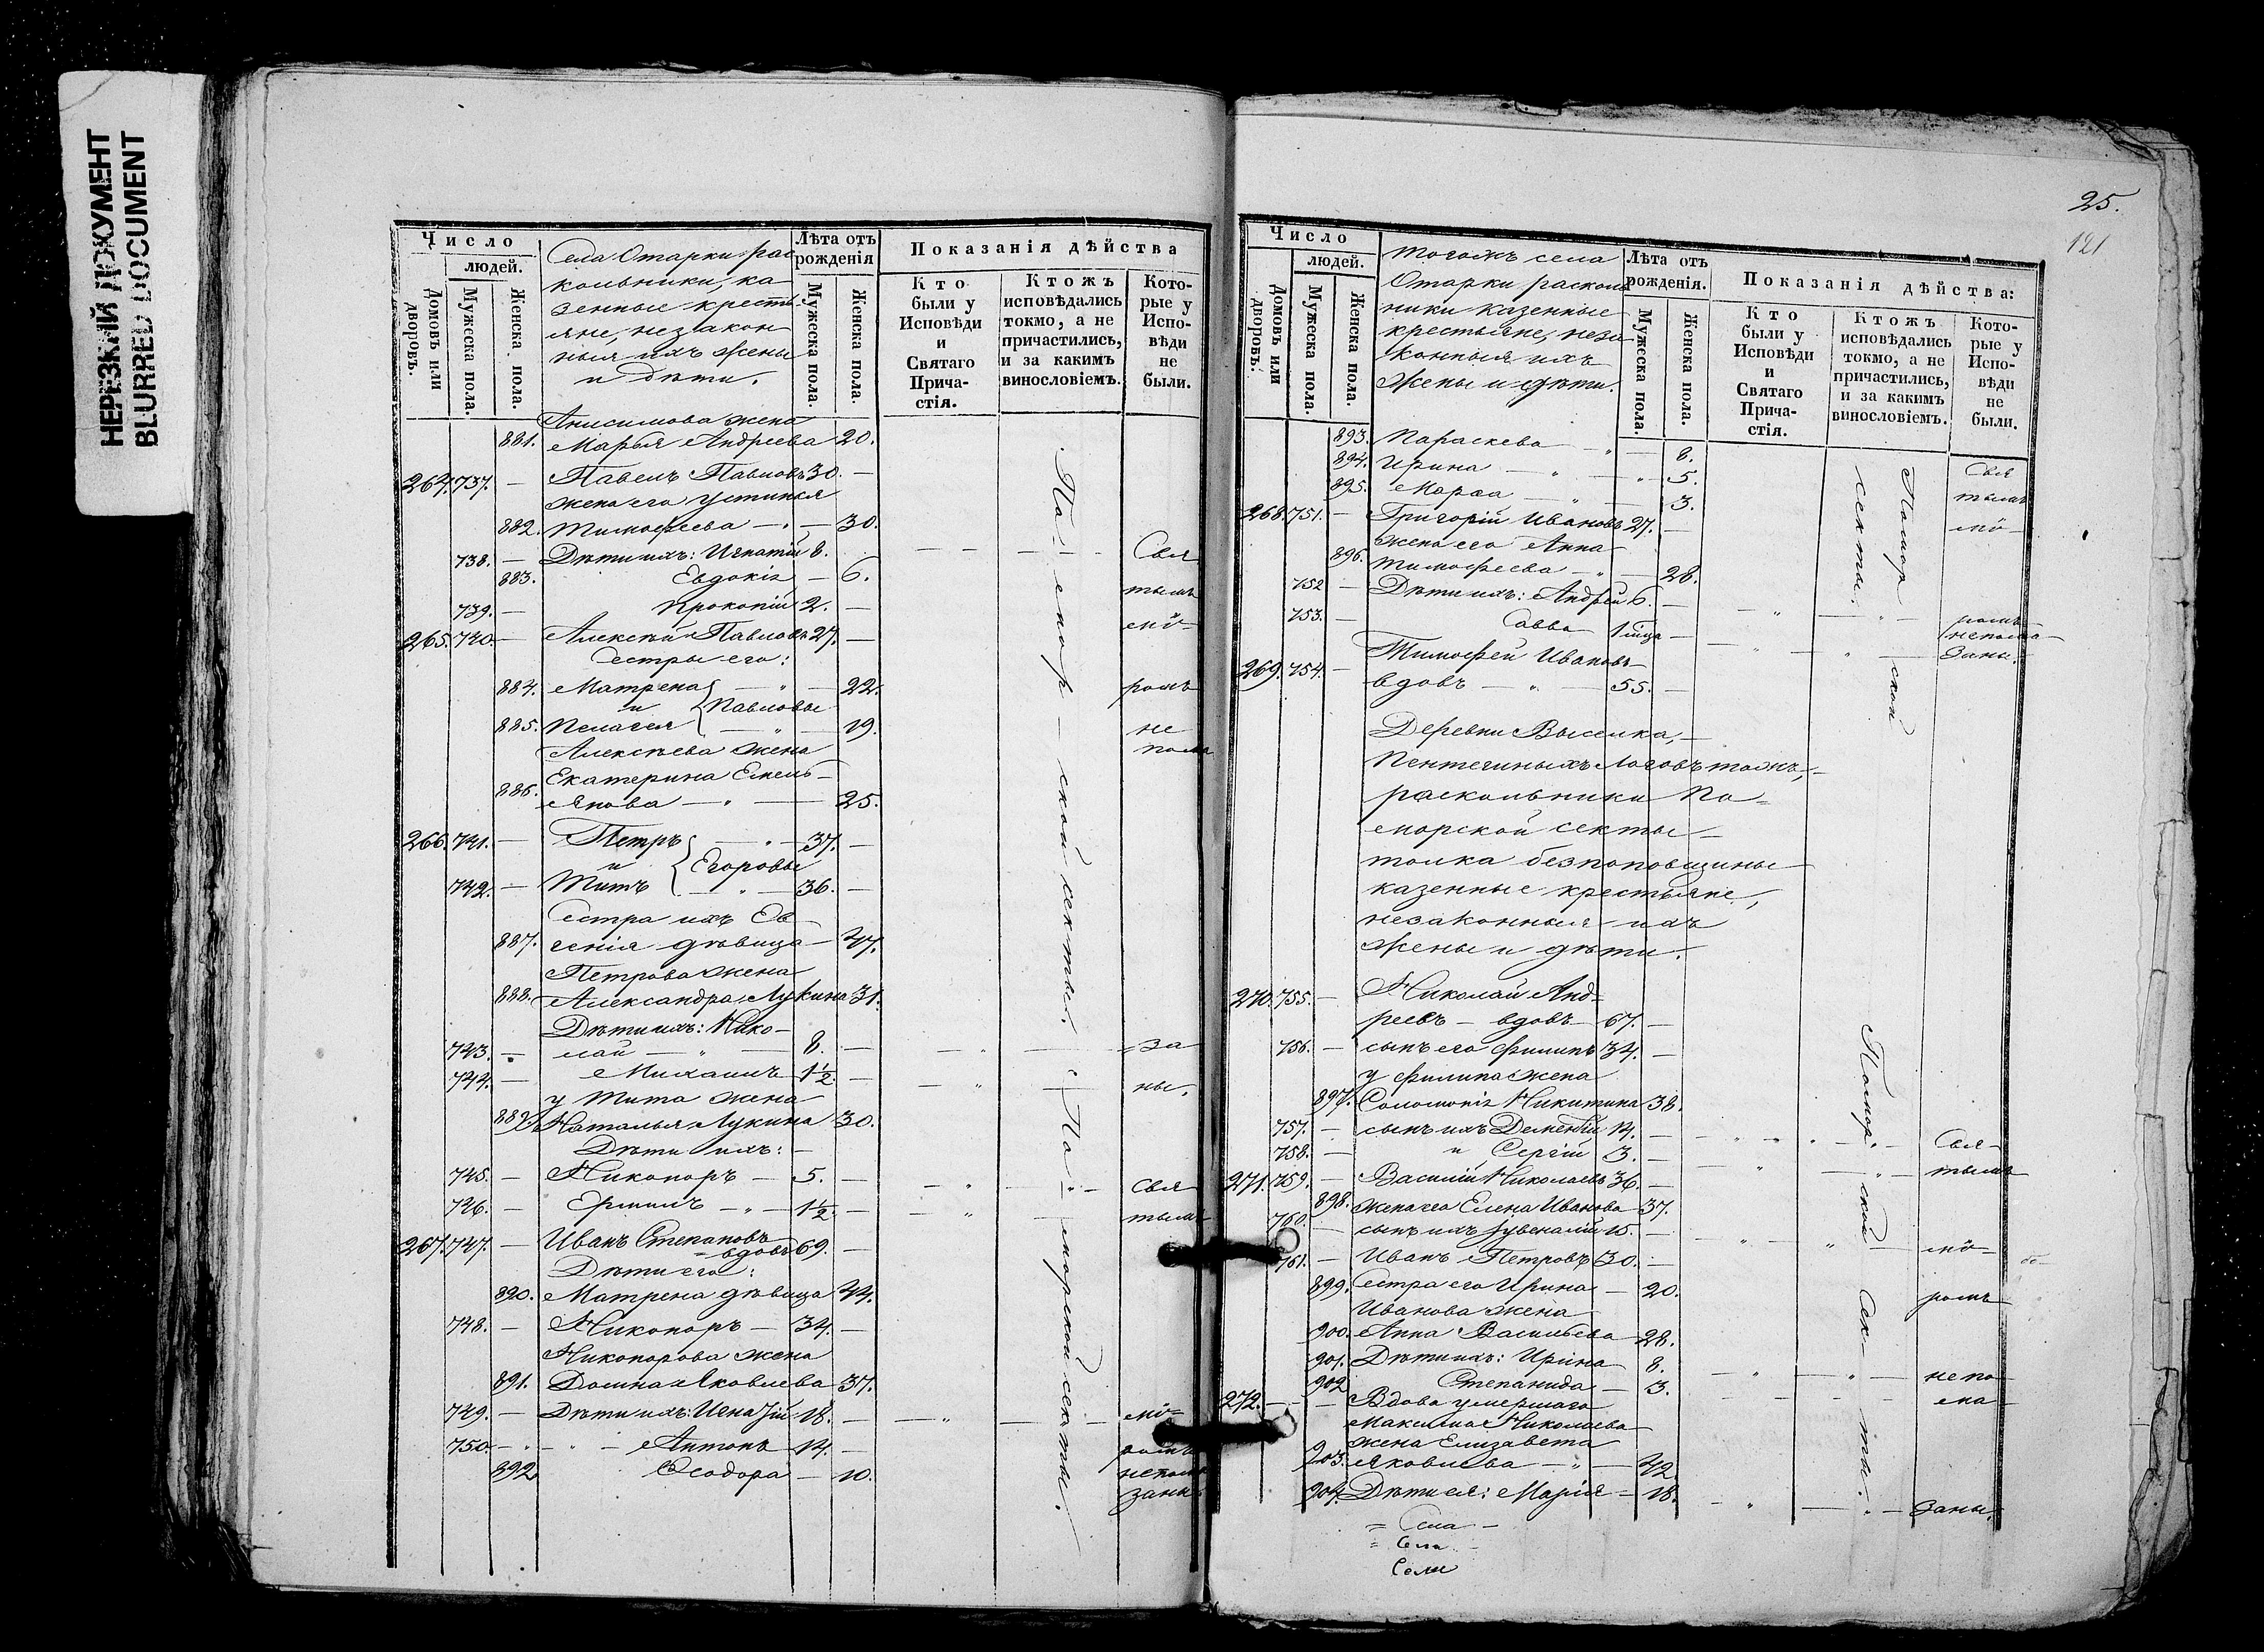 НЕРЕЗКИЙ ДОКУМЕНТ
BLURRED DOCUMENT
Число
людей.
Домовъ или дворовъ.
Мужеска пола.
Женска пола.
Села Отарки рас
кольники, ка
зенные кресть
яне, незакон
ныя ихъ жены
и дѣти.
Лѣта отъ рожденія
Мужеска пола.
Женска пола.
Показанія дѣйства
Кто были у Исповѣди и Святаго Причастія.
Ктожъ исповѣдались токмо, а не причастились, и за какимъ винословіемъ.
Которые у Исповѣди не были.
Анисимова жена
881. Марья Андреева 20.
264. 737. — Павелъ Павловъ 30. —
жена его Устинья
882. Тимофеева — " — 30.
738. — Дѣти ихъ: Игнатій 8.
883. Евдокія — 6.
739. — Прокопій 2. —
265. 740. — Алексѣй Павловъ 27. —
Сестры его:
884. Матрена — " — 22.
и Павловы
885. Пелагея — " — 19.
Алексѣева жена
Екатерина Емель-
886. янова — " — 25.
266. 741. — Петръ — " — 37. —
и Егоровы
742. — Титъ — " — 36. —
Сестра ихъ Ев
887. генія дѣвица — 47.
Петрова жена
888. Александра Лукина 31.
Дѣти ихъ: Нико-
743. — лай — " — 8. —
744. — Михаилъ 1½. —
у Тита жена
889. Наталья Лукина 30.
Дѣти ихъ: —
745. — Никоноръ — 5. —
746. — Ермилъ — " — 1½. —
267. 747. — Иванъ Степановъ
= вдовъ 69. —
Дѣти его:
890. Матрена дѣвица 44.
748. — Никоноръ — 34. —
Никонорова жена
891. Домна Яковлева 37.
749. — Дѣти ихъ: Игнатій 18. —
750. — " — Антонъ 14. —
892. Ѳеодора — 10.
По — морской секты.
По — морской секты.
Свя
тымъ
мѵ-
ромъ
не
пома
= за
ны.
Свя
тымъ
мѵ=
ромъ
непома
заны
25.
121
Число
людей.
Домовъ или дворовъ.
Мужеска пола.
Женска пола.
Тогожъ села
Отарки расколь
ники казенные
крестьяне, неза
конныя ихъ
жены и дѣти.
Лѣта отъ рожденія.
Мужеска пола.
Женска пола.
Показанія дѣйства:
Кто были у Исповѣди и Святаго Причастія.
Ктожъ исповѣдались токмо, а не причастились, и за какимъ винословіемъ.
Которые у Исповѣди не были.
893. Параскева — " — 8.
894. Ирина — " — " 5.
895. Марѳа — " — 3.
268. 751. — Григорій Ивановъ 27. —
жена его Анна
896. Тимофеева — " — 28.
752 — Дѣти ихъ: Андрей 6. —
753. — Савва 1 мѣца —
Тимофей Ивановъ
269. 754. — вдовъ — " — 55. —
Деревни Выселка, —
Пентегиныхъ Логовъ тожъ, —
раскольники По=
морской секты —
толка безпоповщины
казенные крестьяне,
незаконныя ихъ
жены и дѣти.
270. 755. — Николай Анд=
реевъ — вдовъ — 67. —
756. — сынъ его Филипъ 34. —
у Филипа жена
897. Соломонія Никитина 38.
757. — сынъ ихъ Дементій 14. —
758. — и Сергій 3. —
271. 759. — Василій Николаевъ 36. —
898. жена его Елена Иванова 37.
760. — сынъ ихъ Іувеналій 15. —
761. — Иванъ Петровъ 30. —
899. Сестра его Ирина — 20.
Иванова жена
900. Анна Васильева 28.
901. Дѣти ихъ: Ирина 8.
902 Степанида — 3.
272. — — Вдова умершаго
Максима Николаева
жена Елизавета
903. Яковлева — " — 42.
904. Дѣти ея: Марія — 18.
Помор ской
секты.
Помор. ской Сек- ты.
Свя
тымъ
мѵ-
ромъ
непома
заны.
Свя-
тымъ
мѵ-
ромъ
непо-
ма-
заны.
= Села —
= Села —
Села